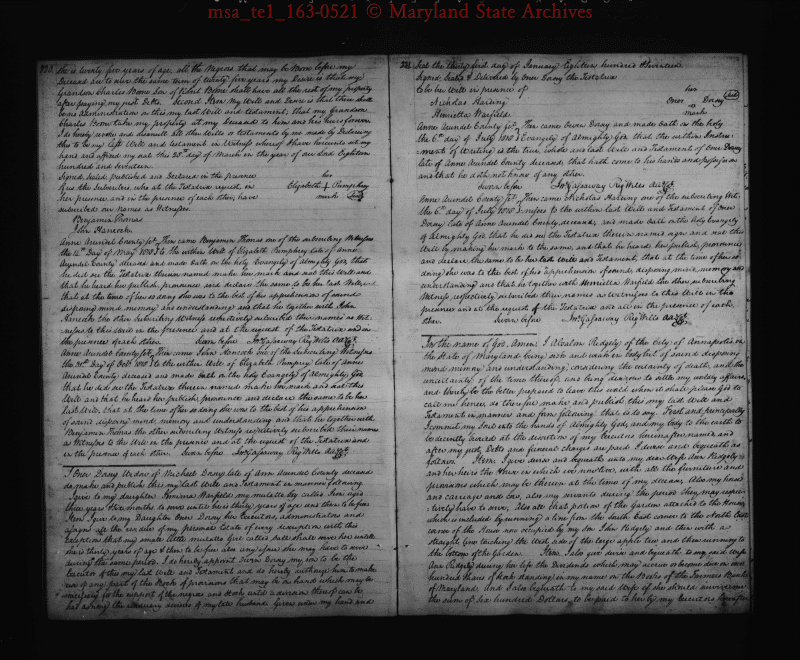 msa_te1_163-0521 © Maryland State Archives
she is twenty five years of age, all the Negroes that may be Born before my
Decease are to serve the same term of twenty five years my Desire is that my
Grandson Charles Boone Son of Robert Boone shall have all the rest of my property
after paying my just Debts. Second Item My Will and Desire is that there shall
be no Administration on this my last Will and testament, that my Grandson
Charles Boone take my property at my Decease to him and his heirs forever
I do hereby revoke and disannull all other Wills or testaments by me made by Declaring
this to be my last Will and testament in Witness whereof I have hereunto set my
hand and affixed my seal this 20th day of March in the year of our Lord Eighteen
hundred and
Signed Sealed published and Declared in the presence
of us the Subscribers, who at the Testatrix request, in
her presence, and in the presence of each other, have
subscribed our names as Witnesses
her
Elizabeth Pumphrey
mark
Benjamin Thomas
John Hancock
Anne Arundel County Sct. Then came Benjamin Thomas one of the subscribing Witnesses
the day of May 1818 to the within Will of Elizabeth Pumphrey late of Anne
Arundel County deceased and made Oath on the holy Evangely of Almighty God, that
he did see the Testatrix therein named make her mark and seal this Will and
that he heard her publish pronounce and declare the same to be her last Will, and
that at the time of her so doing she was to the best of his apprehension of sound
disposing mind, memory and understanding and that he together with John
Hancock the other Subscribing Witness respectively subscribed their names as Wit-
nesses to this Will in the presence and at the request of the Testatrix and in
the presence of each other. Sworn before Jno. Gassaway Reg. Wills AA Cty.
Anne Arundel County Sct. Then came John Hancock one of the Subscribing Witnesses
the day of Octr 1818 to the within Will of Elizabeth Pumphrey late of Anne
Arundel County deceased and made Oath on the holy Evangely of Almighty God
that he did see the Testatrix therein named make her mark and seal this
Will and that he heard her publish, pronounce and declare the same to be her
last Will, that at the time of her so doing she was to the best of his apprehension
of sound disposing mind, memory and understanding and that he together with
Benjamin Thomas the other subscribing Witness respectively subscribed their names
as Witnesses to this Will in the presence and at the request of the Testatrix and
in the presence of each other. Sworn before Jno. Gassaway Reg. Wills AA Cty.
I Dorsey Widow of Michael Dorsey late of Ann Arundel County deceased
do make and publish this my last Will and Testament in manner following
I give to my daughter Warfield my mulatto boy called
three years Six months to serve until he is thirty years of age and then to be free
Item I give to my Daughter Dorsey her Executors, administrators and
assigns all the residue of my personal Estate of every description with this
exception that my small little mulatto Girl called shall serve her until
she is thirty years of age & then to be free also any issue she may have to serve
during the same period. I do hereby appoint Dorsey my son to be the
Executor of this my last Will and Testament and do hereby authorise him to make
use of any part of the Stock of provisions that may be on hand which may be
necessary for the support of the negroes and stock until a division thereof can be
had as may the necessary of my late husband. Given under my hand and
Seal the thirty first day of January Eighteen hundred & seventeen
Signed, Sealed & Delivered by Dorsey the Testatrix
to be her Will in presence of
Nicholas Harding
Henrietta Warfield
her
Dorsey
mark
Anne Arundel County Sct. Then came Dorsey and made oath on the holy
the 6th day of July 1818 Evangely of Almighty God that the within Instru-
ment of Writing is the true, whole and last Will and Testament of Dorsey
late of Anne Arundel County deceased, that hath come to his hands and possession
and that he doth not know of any other.
Sworn before Jno. Gassaway Reg. Wills AA Cty.
Anne Arundel County Sct. Then came Nicholas Harding one of the subscribing Wit-
the 6th day of July 1818 nesses to the within last Will and Testament of
Dorsey late of Anne Arundel County deceased, and made oath on the holy Evangely
of Almighty God that he did see the Testatrix therein named sign and seal this
Will by making her mark to the same, and that he heard her publish, pronounce
and declare the same to be her last Will and Testament, that at the time of her so
doing she was to the best of his apprehension of sound disposing mind, memory and
understanding and that he together with Henrietta Warfield the other subscribing
Witness respectively subscribed their names as witnesses to this Will in the
presence and at the request of the Testatrix and all in the presence of each
other. Sworn before Jno. Gassaway Reg. Wills AA Cty.
In the name of God, Amen. I Absalom Ridgely of the City of Annapolis in
the State of Maryland being sick and weak in body but of sound disposing
mind memory and understanding, considering the certainty of death, and the
uncertainty of the time thereof, and being desirous to settle my worldly affairs
and thereby be the better prepared to leave this world when it shall please God to
call me hence, do therefore make and publish this my last Will and
Testament in manner and form following that is to say. First and principally
I commit my Soul into the hands of Almighty God, and my body to the earth to
be decently buried at the discretion of my Executors hereinafter named and
after my just Debts and funeral charges are paid I devise and bequeath as
follows. Item I give devise and bequeath unto my dear Wife Ann Ridgely
and her heirs the House in which we now live, with all the furniture and
provisions which may be therein at the time of my decease, Also my horse
and carriage and cow, also my servants during the period they may respec-
tively have to serve, Also all that portion of the garden attached to the House
which is included by running a line from the South East corner to the North East
corner of the now occupied by my son John Ridgely and then with a
straight line touching the West side of the large apple tree and then running to
the bottom of the garden. Item I also give devise and bequeath to my said Wife
Ann Ridgely during her life the Dividends which may accrue or become due on one
hundred shares of Stock standing in my name on the Books of the Farmers Bank
of Maryland, and I also bequeath to my said Wife if she should survive me
the sum of six hundred Dollars to be paid to her by my Executors hereafter